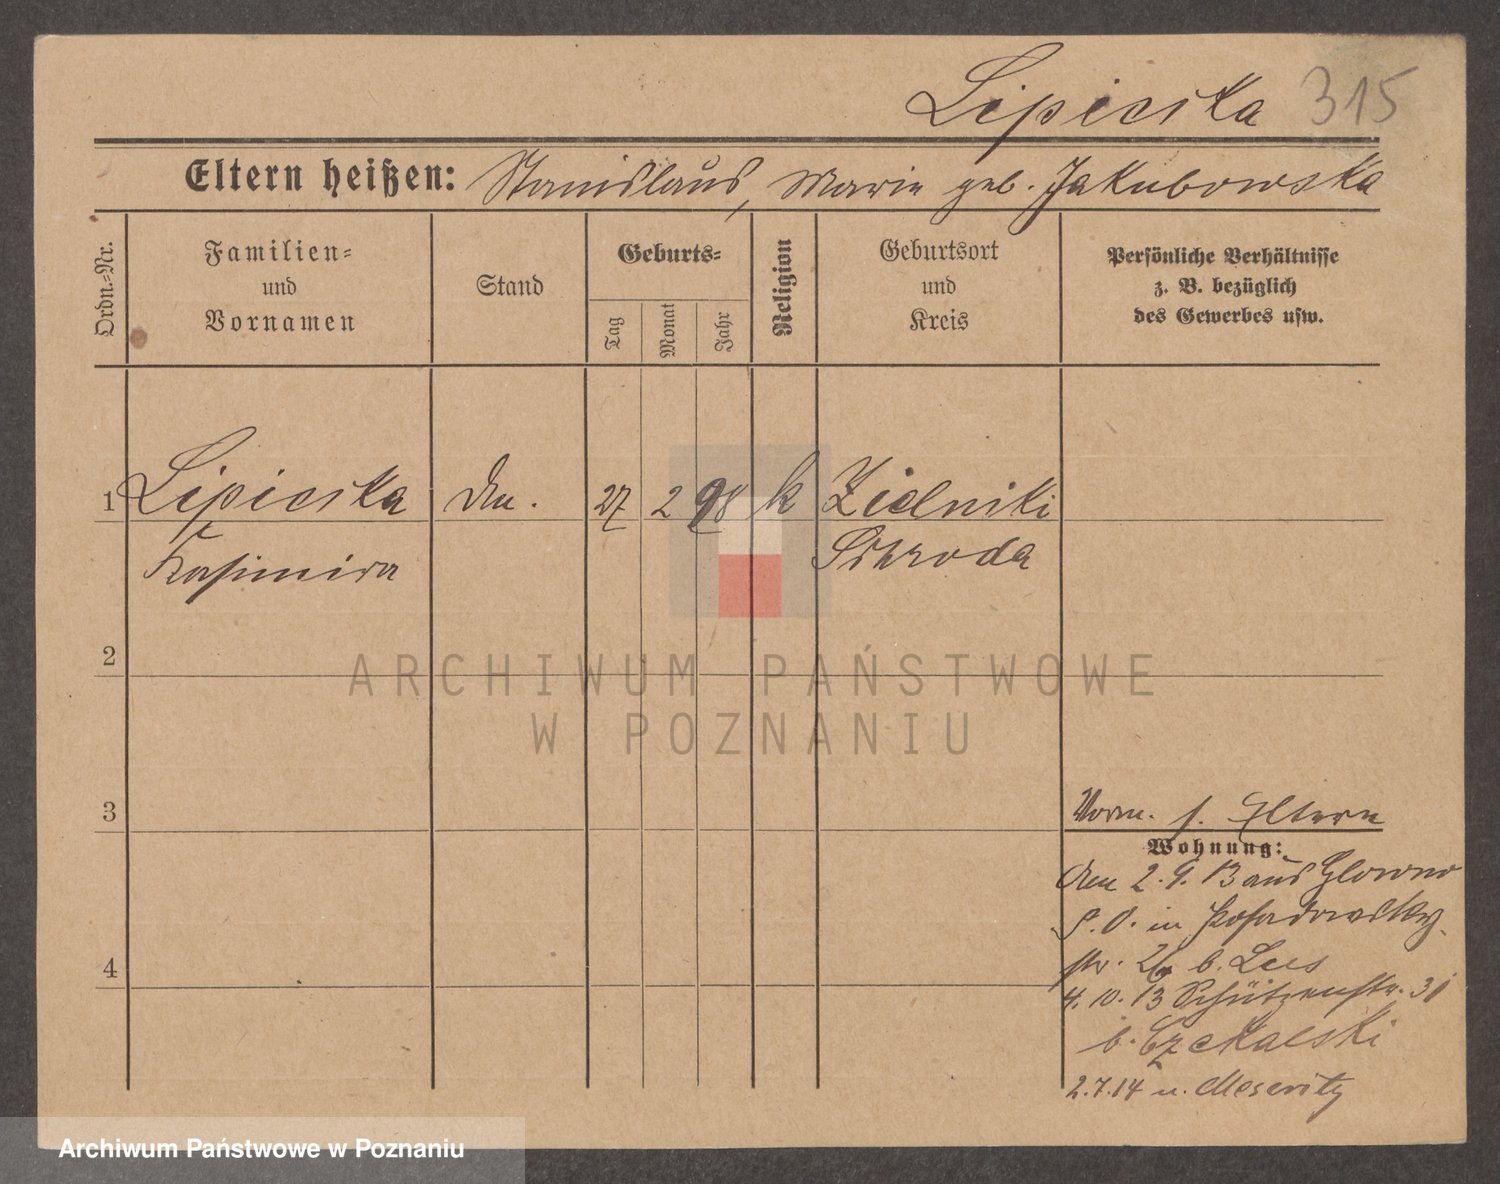 Lipicska 315
Eltern heißen: Stanislaus, Marie geb. Jakubowska
Ordn.-Nr.
Familien-
und
Vornamen
Stand
Geburts-
Tag
Monat
Jahr
Religion
Geburtsort
und
Kreis
Persönliche Verhältnisse
z. B. bezüglich
des Gewerbes usw.
1 Lipicska 27 2 98 k Zielniki
Kasimira Schroda
2
ARCHIWUM PAŃSTWOWE
W POZNANIU
3
Vorm. s. Eltern
Wohnung:
den 2.9.13 aus Glowno
P. O. in Posadowsky-
str. 26 b. Lus
4
4.10.13 Schützenstr. 31
b. Czekalski
2.7.14 n. Meseritz
Archiwum Państwowe w Poznaniu